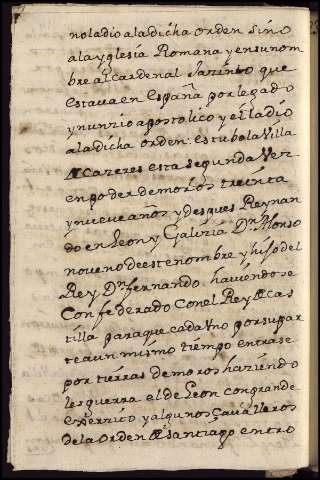 noladio aladicha orden sino
alayglesia Romana yensunom
bre alcardenal Jazinto que
estava en España por legado
ynunzio apostolico y el ladio
aladicha orden: estubola Villa
de Cazeres esta segunda Vez
enpoder demoros treinta
ynueve años, ydespues Reynan
do en Leon y Galizia Dn. Alonso
noveno deeste nombre y hijo del
Rey Dn. fernando, haviendose
Confederado Conel Rey de Cas
tilla paraque cada Uno porsupar
te aun mismo tiempo entrase
por tierras demoros haziendo
les guerra el de Leon congrande
exernito y algunos Cavalleros
dela Orden de Santiago entró